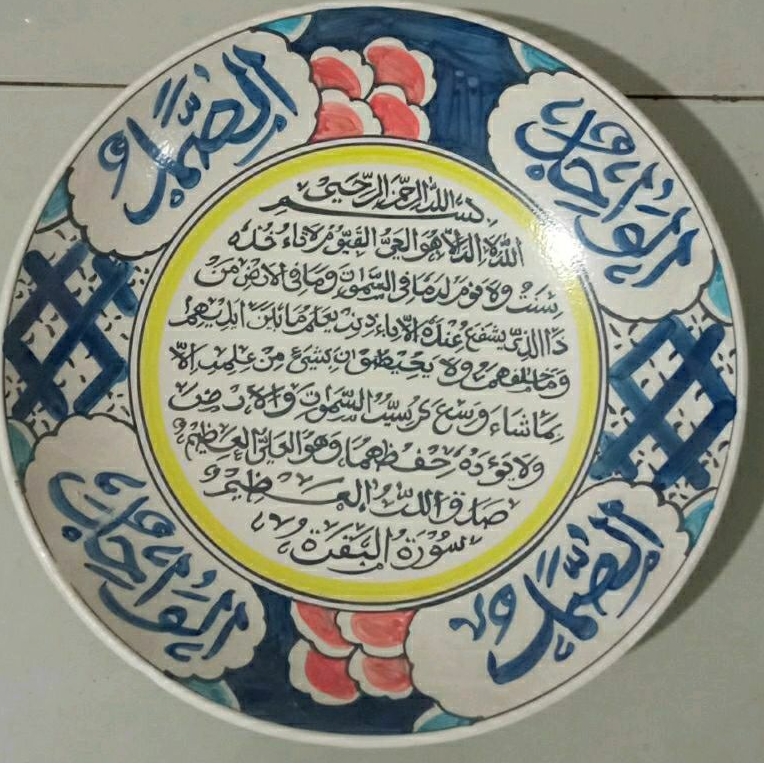 الصمد
الواحد
بسم الله الرحمن الرحيم
الله لا اله الا هو الحي القيوم لا تاءخذه
سنة ولا نوم له ما في السموات وما في الارض من
ذا الذي يشفع عنده الا باءذنه يعلم ما بين ايديهم
وما خلفهم ولا يحيطون بشيء من علمه الا
بما شاء وسع كرسيه السموات والارض
ولا يؤده حفظهما وهو العلي العظيم
صدق الله العظيم
سورة البقرة
الواحد
الصمد